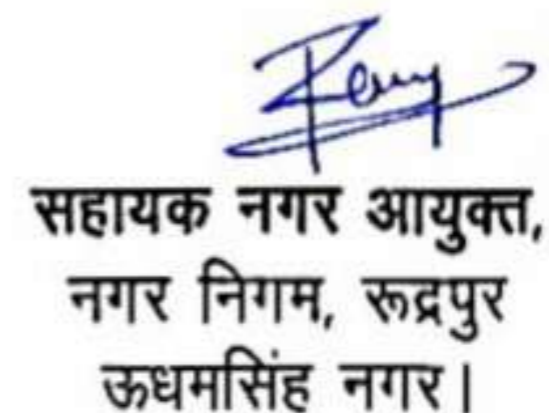 सहायक नगर आयुक्त,
नगर निगम, रूद्रपुर
ऊधमसिंह नगर|